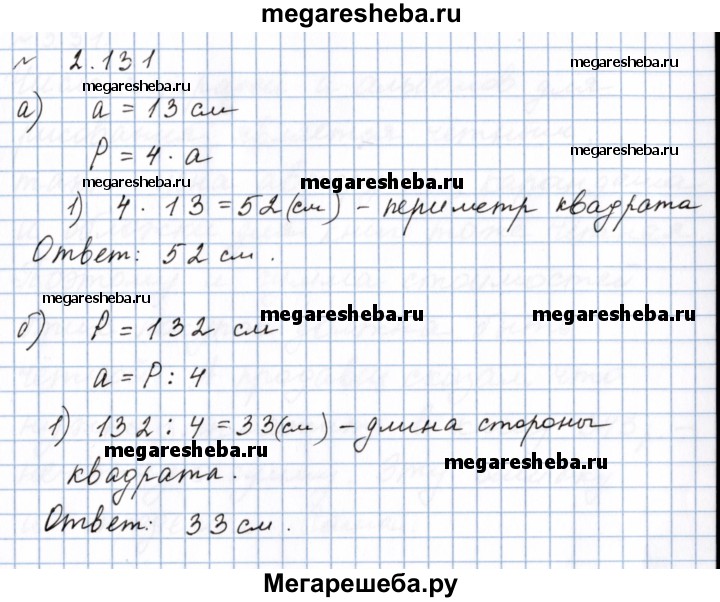 megaresheba.ru
№ 2.131
megaresheba.ru
megaresheba.ru
а) a = 13 см
P = 4 · a
megaresheba.ru
megaresheba.ru
megaresheba.ru
1) 4 · 13 = 52 (см) – периметр квадрата
Ответ: 52 см.
megaresheba.ru
megaresheba.ru
megaresheba.ru
б) P = 132 см
a = P : 4
1) 132 : 4 = 33 (см) – длина стороны
megaresheba.ru
megaresheba.ru
квадрата.
Ответ: 33 см.
Мегарешеба.ру